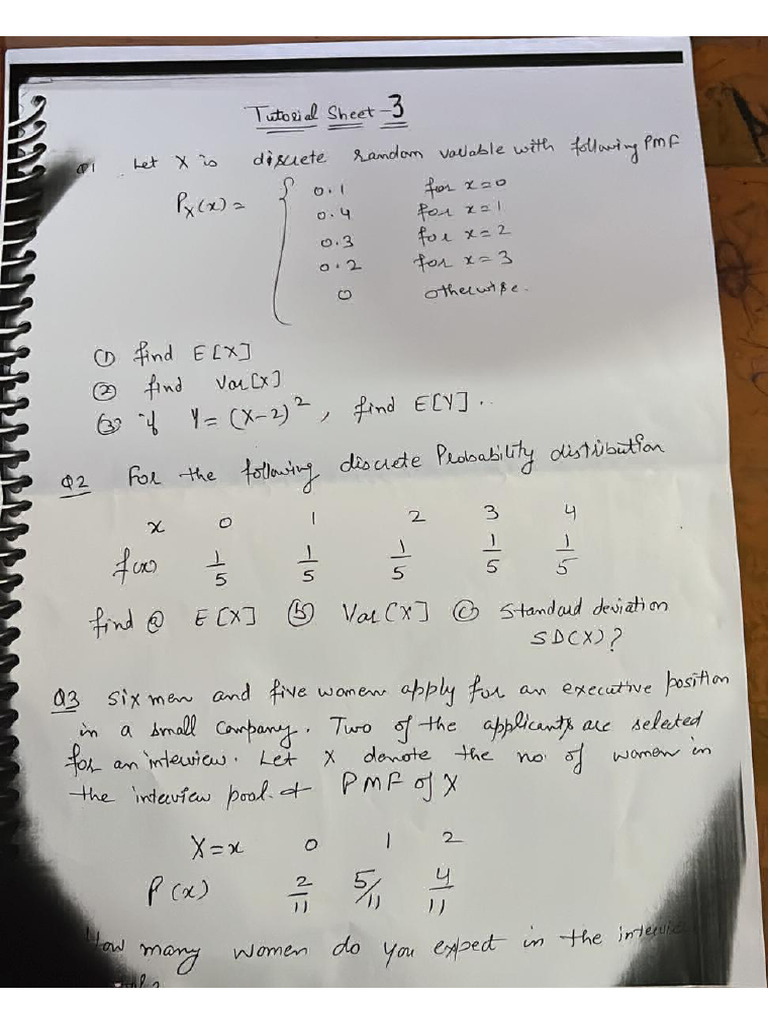 Tutorial Sheet-3
Q1 Let X is discrete random variable with following PMF
Px(x) = { 0.1 for x=0
0.4 for x=1
0.3 for x=2
0.2 for x=3
0 otherwise.
① find E[X]
② find Var[X]
③ if Y = (X-2)², find E[Y]..
Q2 For the following discrete Probability distribution
x 0 1 2 3 4
f(x) 1/5 1/5 1/5 1/5 1/5
find ⓐ E[X] ⓑ Var[X] ⓒ Standard deviation
SD(X)?
Q3 Six men and five women apply for an executive position
in a small Company. Two of the applicants are selected
for an interview. Let X denote the no. of women in
the interview pool. PMF of X
X=x 0 1 2
P(x) 2/11 5/11 4/11
How many women do you expect in the